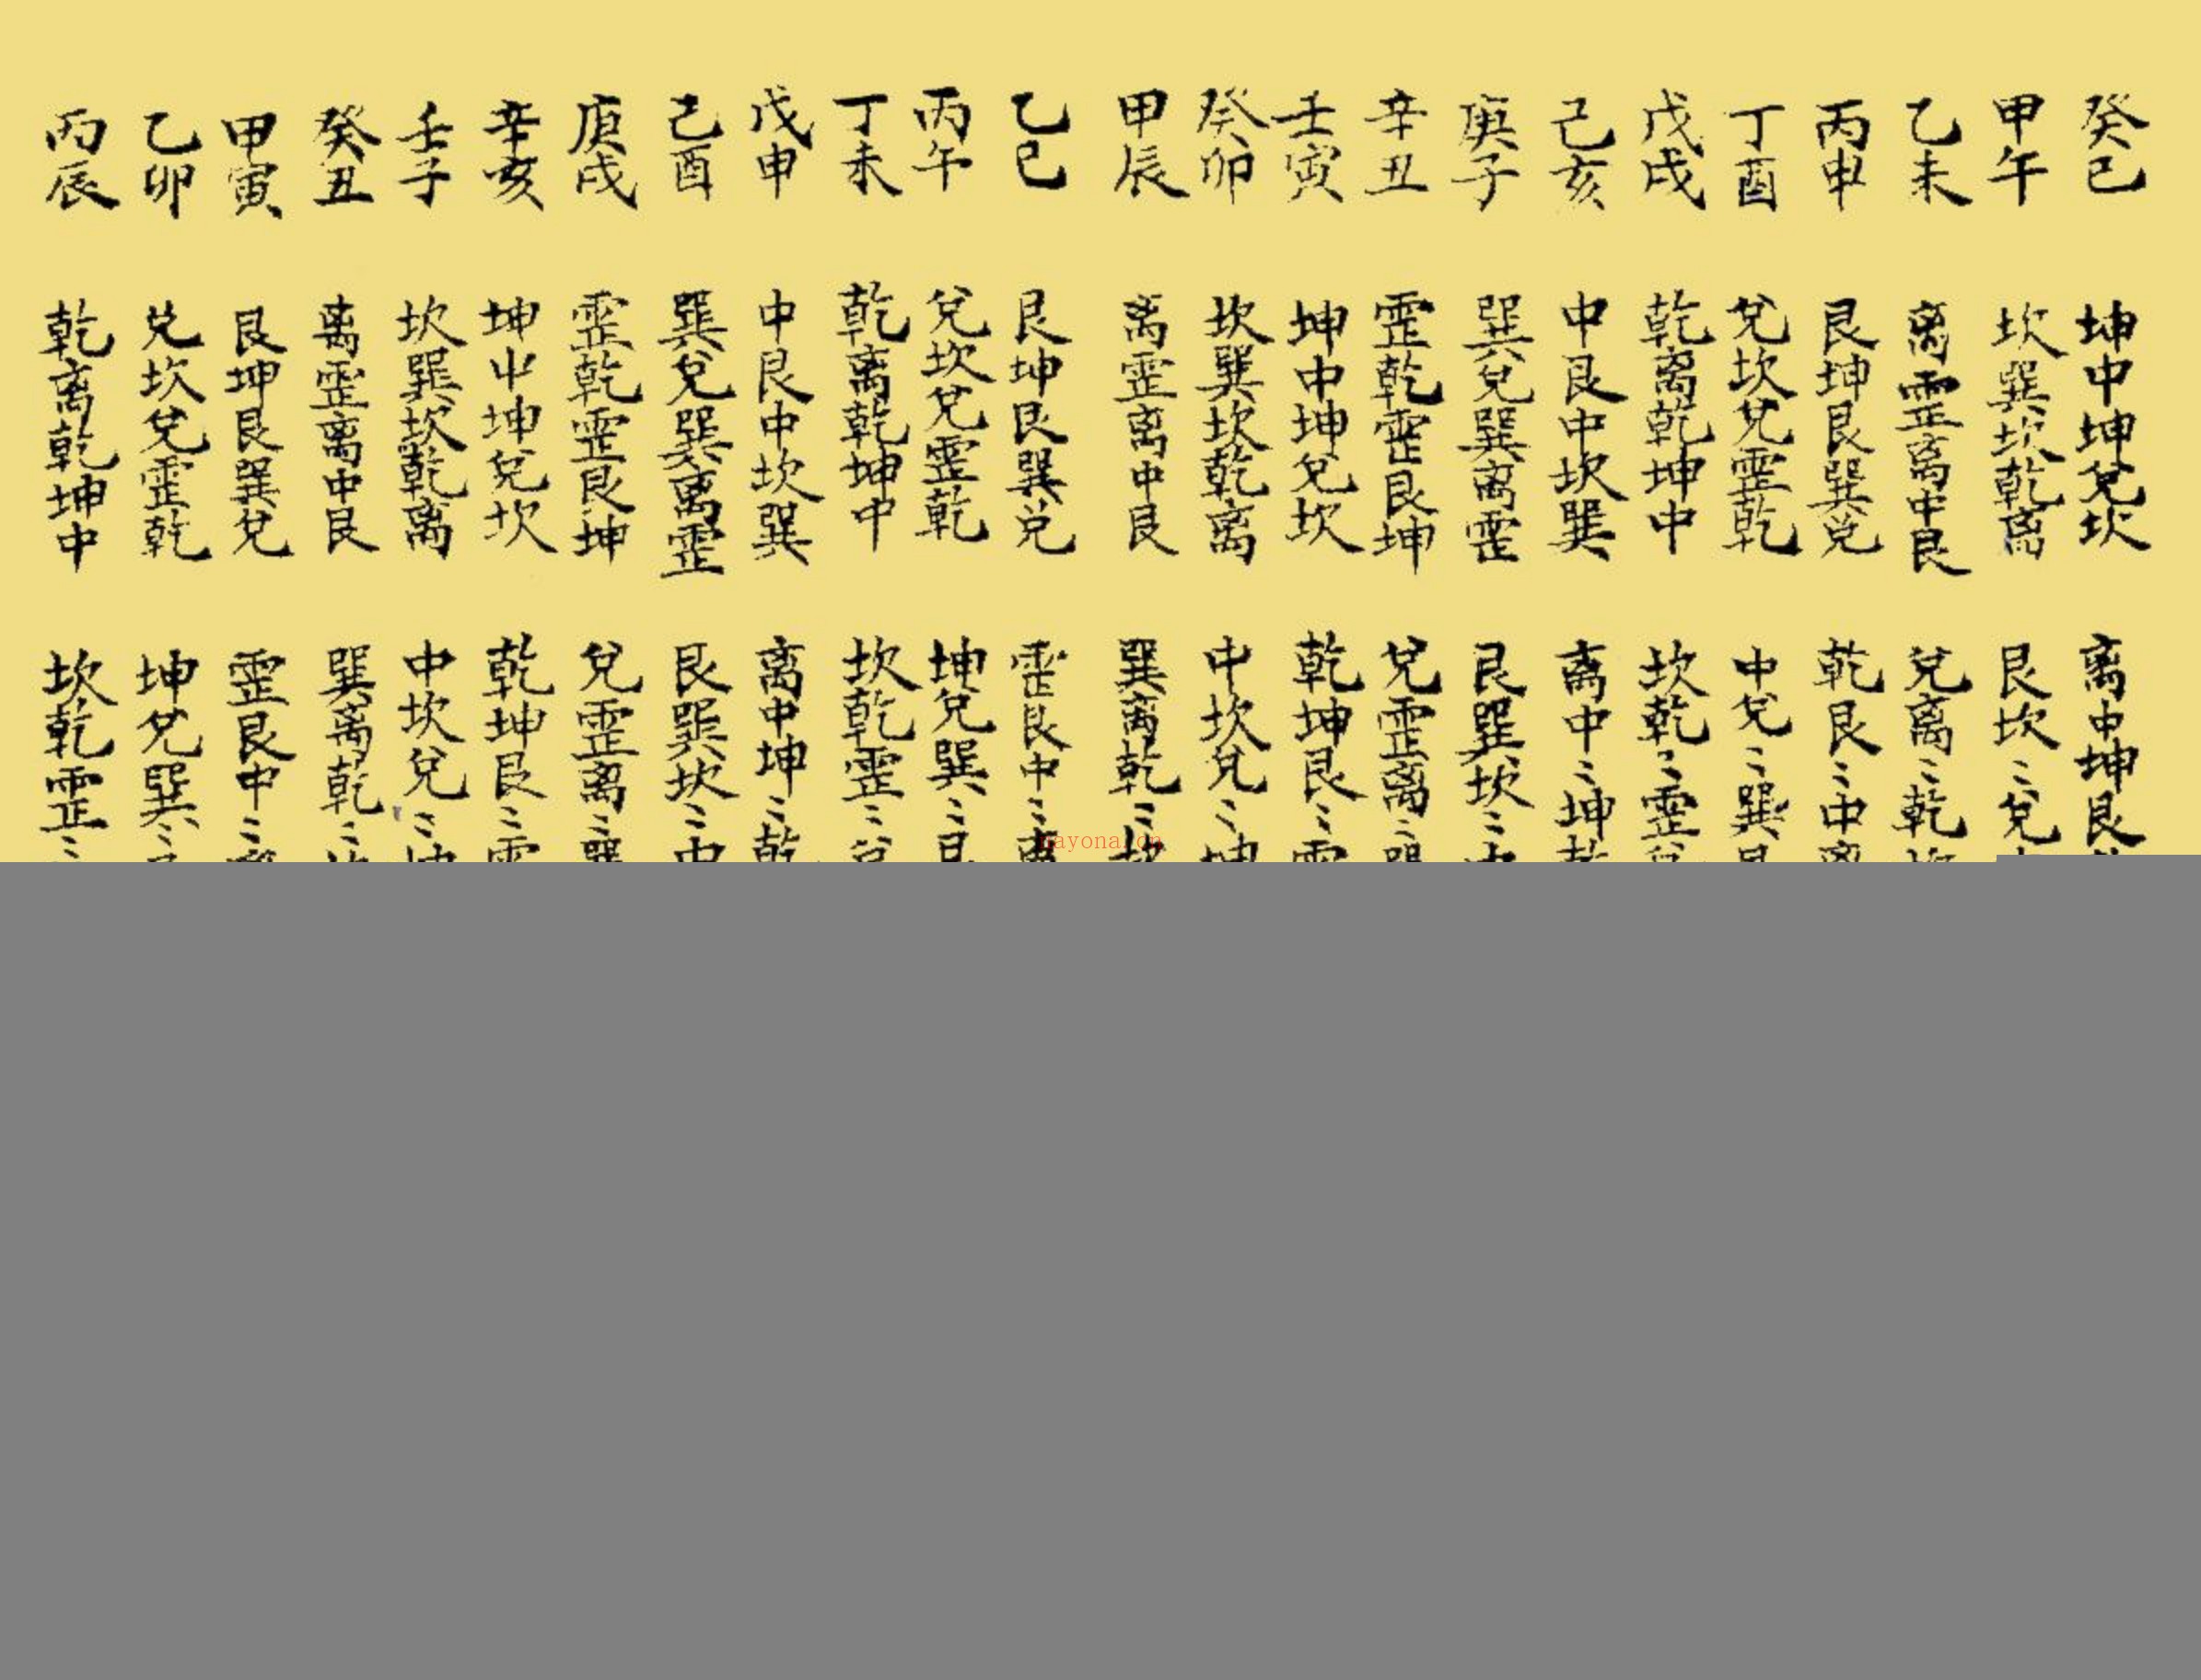 癸巳 坤中坤兌坎 离中坤艮
甲午 坎巽坎乾离 艮坎〻兌
乙未 离震离中艮 兌离〻乾
丙申 艮坤艮巽兌 乾艮〻中
丁酉 兌坎兌震乾 中兌〻巽
戊戌 乾离乾坤中 坎乾〻震
己亥 中艮中坎巽 离中〻坤
庚子 巽兌巽离震 艮巽坎〻
辛丑 震乾震艮坤 兌震离〻
壬寅 坤中坤兌坎 乾坤艮〻
癸卯 坎巽坎乾离 中坎兌〻
甲辰 离震离中艮 巽离乾〻
乙巳 艮坤艮巽兌 震艮中〻
丙午 兌坎兌震乾 坤兌巽〻
丁未 乾离乾坤中 坎乾震〻
戊申 中艮中坎巽 离中坤〻
己酉 巽兌巽离震 艮巽坎〻
庚戌 震乾震艮坤 兌震离〻
辛亥 坤中坤兌坎 乾坤艮〻
壬子 坎巽坎乾离 中坎兌〻
癸丑 离震离中艮 巽离乾〻
甲寅 艮坤艮巽兌 震艮中〻
乙卯 兌坎兌震乾 坤兌巽〻
丙辰 乾离乾坤中 坎乾震〻